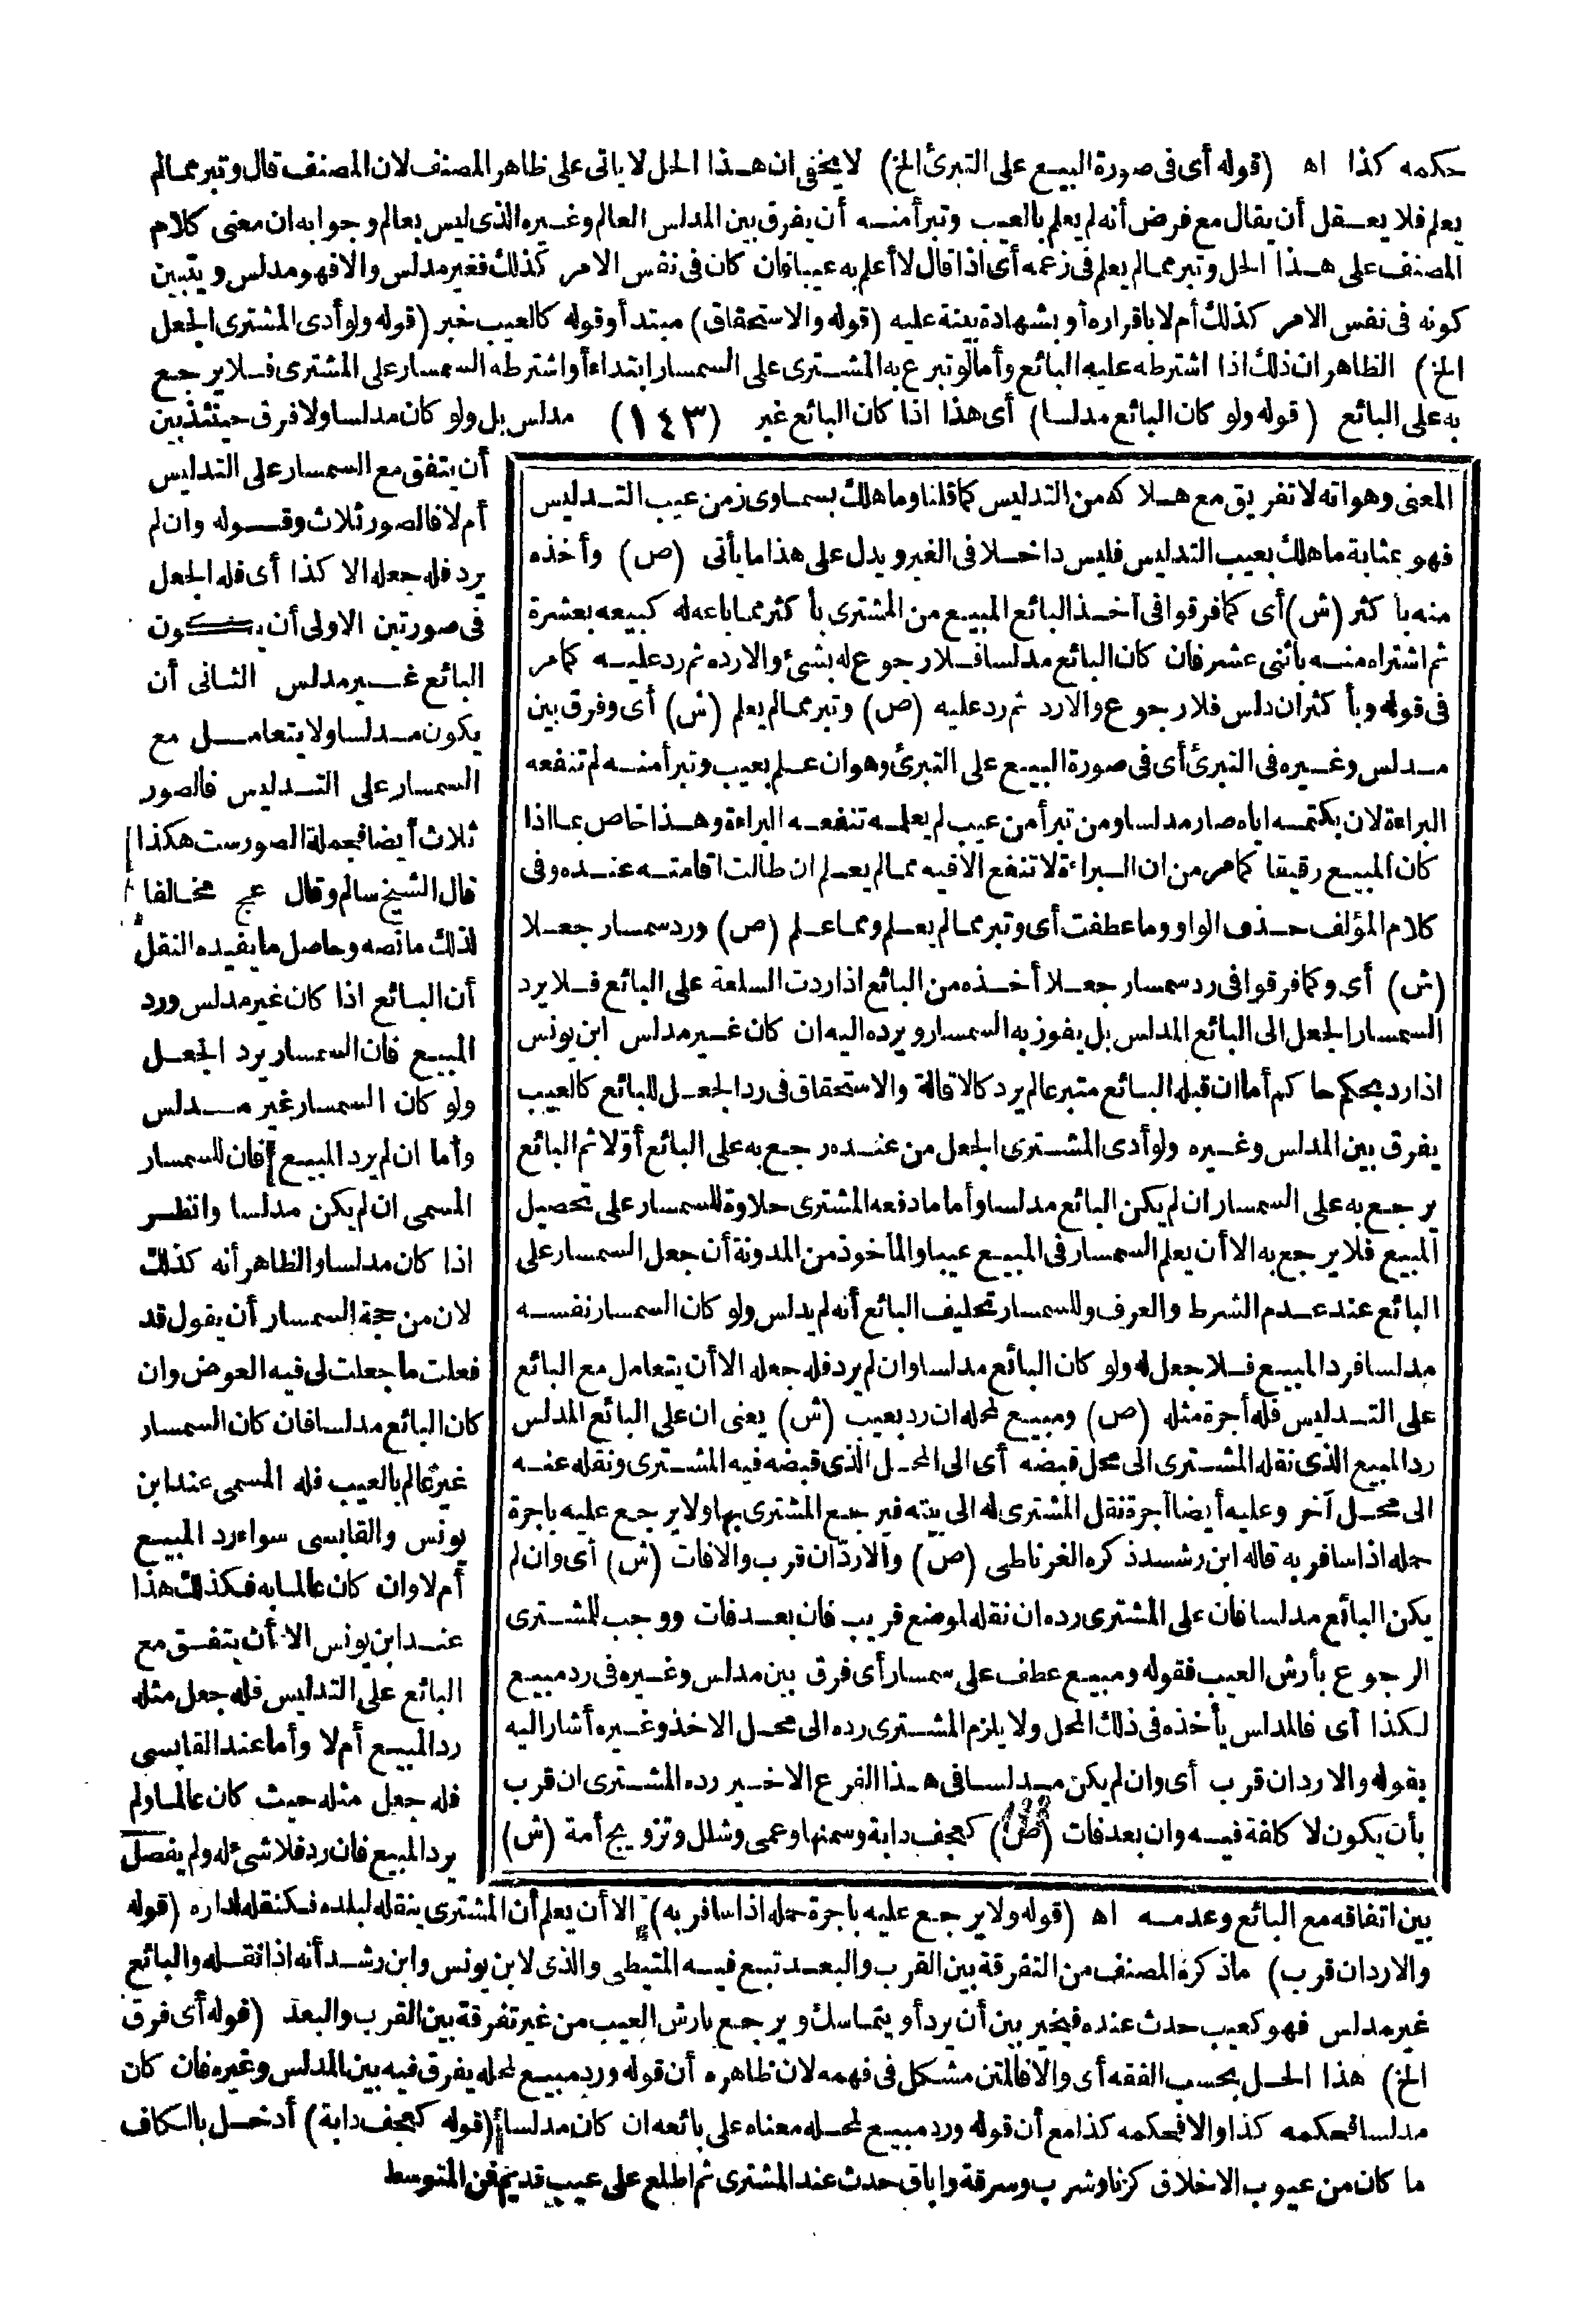 حكمه كذا اه (قوله أى فى صورة البيع على التبرئ الخ) لا يخفى ان هذا الحل لا يأتى على ظاهر المصنف لان المصنف قال وتبر مما لم
يعلم فلا يعقل أن يقال مع فرض أنه لم يعلم بالعيب وتبرأ منه أن يفرق بين المدلس العالم وغيره الذى ليس بعالم وجوابه ان معنى كلام
المصنف على هذا الحل وتبر مما لم يعلم فى زعمه أى اذا قال لا أعلم به عيبا فان كان فى نفس الامر كذلك فغير مدلس والا فهو مدلس ويتبين
كونه فى نفس الامر كذلك أم لا باقراره أو بشهادة بينة عليه (قوله والاستحقاق) مبتدأ وقوله كالعيب خبر (قوله ولو أدى المشترى الجعل
الخ) الظاهر ان ذلك اذا اشترطه عليه البائع وأما لو تبرع به المشترى على السمسار ابتداء أو اشترطه السمسار على المشترى فلا يرجع
به على البائع (قوله ولو كان البائع مدلسا) أى هذا اذا كان البائع غير (١٤٣) مدلس بل ولو كان مدلسا ولا فرق حينئذ بين
أن يتفق مع السمسار على التدليس
أم لا فالصور ثلاث وقوله وان لم
يرد فله جعله الا كذا أى فله الجعل
فى صورتين الاولى أن يكون
البائع غير مدلس الثانى أن
يكون مدلسا ولا يتعامل مع
السمسار على التدليس فالصور
ثلاث أيضا فجملة الصور ست هكذا
قال الشيخ سالم وقال عج مخالفا
لذلك ما نصه وحاصل ما يفيده النقل
أن البائع اذا كان غير مدلس ورد
المبيع فان السمسار يرد الجعل
ولو كان السمسار غير مدلس
وأما ان لم يرد المبيع فان للسمسار
المسمى ان لم يكن مدلسا وانظر
اذا كان مدلسا والظاهر أنه كذلك
لان من حجة السمسار أن يقول قد
فعلت ما جعلت لى فيه العوض وان
كان البائع مدلسا فان كان السمسار
غير عالم بالعيب فله المسمى عند ابن
يونس والقابسى سواء رد المبيع
أم لا وان كان عالما به فكذلك هذا
عند ابن يونس الا أن يتفق مع
البائع على التدليس فله جعل مثله
رد المبيع أم لا وأما عند القابسى
فله جعل مثله حيث كان عالما ولم
يرد المبيع فان رد فلا شئ له ولم يفصل
المعنى وهو انه لا تفريق مع هلاكه من التدليس كما قلنا وما هلك بسماوى زمن عيب التدليس
فهو بمثابة ما هلك بعيب التدليس فليس داخلا فى الغير ويدل على هذا ما يأتى (ص) وأخذه
منه بأكثر (ش) أى كما فرقوا فى أخذ البائع المبيع من المشترى بأكثر مما باعه له كبيعه بعشرة
ثم اشتراه منه باثنى عشر فان كان البائع مدلسا فلا رجوع له بشئ والا رده ثم رد عليه كما مر
فى قوله وبأكثر ان دلس فلا رجوع والا رد ثم رد عليه (ص) وتبر مما لم يعلم (ش) أى وفرق بين
مدلس وغيره فى التبرئ أى فى صورة البيع على التبرئ وهو ان علم بعيب وتبرأ منه لم تنفعه
البراءة لان بكتمه اياه صار مدلسا ومن تبرأ من عيب لم يعلمه تنفعه البراءة وهذا خاص بما اذا
كان المبيع رقيقا كما مر من ان البراءة لا تنفع الا فيه مما لم يعلم ان طالت اقامته عنده وفى
كلام المؤلف حذف الواو وما عطفت أى وتبر مما لم يعلم ومما علم (ص) ورد سمسار جعلا
(ش) أى وكما فرقوا فى رد سمسار جعلا أخذه من البائع اذا ردت السلعة على البائع فلا يرد
السمسار الجعل الى البائع المدلس بل يفوز به السمسار ويرده اليه ان كان غير مدلس ابن يونس
اذا رد بحكم حاكم أما ان قبله البائع متبرعا لم يرد كالاقالة والاستحقاق فى رد الجعل للبائع كالعيب
يفرق بين المدلس وغيره ولو أدى المشترى الجعل من عنده رجع به على البائع أوّلا ثم البائع
يرجع به على السمسار ان لم يكن البائع مدلسا وأما ما دفعه المشترى حلاوة للسمسار على تحصيل
المبيع فلا يرجع به الا أن يعلم السمسار فى المبيع عيبا والمأخوذ من المدونة أن جعل السمسار على
البائع عند عدم الشرط والعرف وللسمسار تحليف البائع أنه لم يدلس ولو كان السمسار نفسه
مدلسا فرد المبيع فلا جعل له ولو كان البائع مدلسا وان لم يرد فله جعله الا أن يتعامل مع البائع
على التدليس فله أجرة مثله (ص) ومبيع لمحله ان رد بعيب (ش) يعنى ان على البائع المدلس
رد المبيع الذى نقله المشترى الى محل قبضه أى الى المحل الذى قبضه فيه المشترى ونقله عنه
الى محل آخر وعليه أيضا أجرة نقل المشترى له الى بيته فيرجع المشترى بها ولا يرجع عليه باجرة
حمله اذا سافر به قاله ابن رشد ذكره الغرناطى (ص) والا ردّ ان قرب والا فات (ش) أى وان لم
يكن البائع مدلسا فان على المشترى رده ان نقله لموضع قريب فان بعد فات ووجب للمشترى
الرجوع بأرش العيب فقوله ومبيع عطف على سمسار أى فرق بين مدلس وغيره فى رد مبيع
لكذا أى فالمدلس يأخذه فى ذلك المحل ولا يلزم المشترى رده الى محل الاخذ وغيره أشار اليه
بقوله والا رد ان قرب أى وان لم يكن مدلسا فى هذا الفرع الاخير رده المشترى ان قرب
بأن يكون لا كلفة فيه وان بعد فات (ص) كعجف دابة وسمنها وعمى وشلل وتزويج أمة (ش)
بين اتفاقه مع البائع وعدمه اه (قوله ولا يرجع عليه باجرة حمله اذا سافر به) الا أن يعلم أن المشترى ينقله لبلده فكنقله لداره (قوله
والا رد ان قرب) ما ذكره المصنف من التفرقة بين القرب والبعد تبع فيه المتيطى والذى لابن يونس وابن رشد أنه اذا نقله والبائع
غير مدلس فهو كعيب حدث عنده فيخير بين أن يرد أو يتماسك ويرجع بارش العيب من غير تفرقة بين القرب والبعد (قوله أى فرق
الخ) هذا الحل بحسب الفقه أى والا فالمتن مشكل فى فهمه لان ظاهره أن قوله ورد مبيع لمحله يفرق فيه بين المدلس وغيره فان كان
مدلسا فحكمه كذا والا فحكمه كذا مع أن قوله ورد مبيع لمحله معناه على بائعه ان كان مدلسا (قوله كعجف دابة) أدخل بالكاف
ما كان من عيوب الاخلاق كزنا وشرب وسرقة واباق حدث عند المشترى ثم اطلع على عيب قديم فمن المتوسط